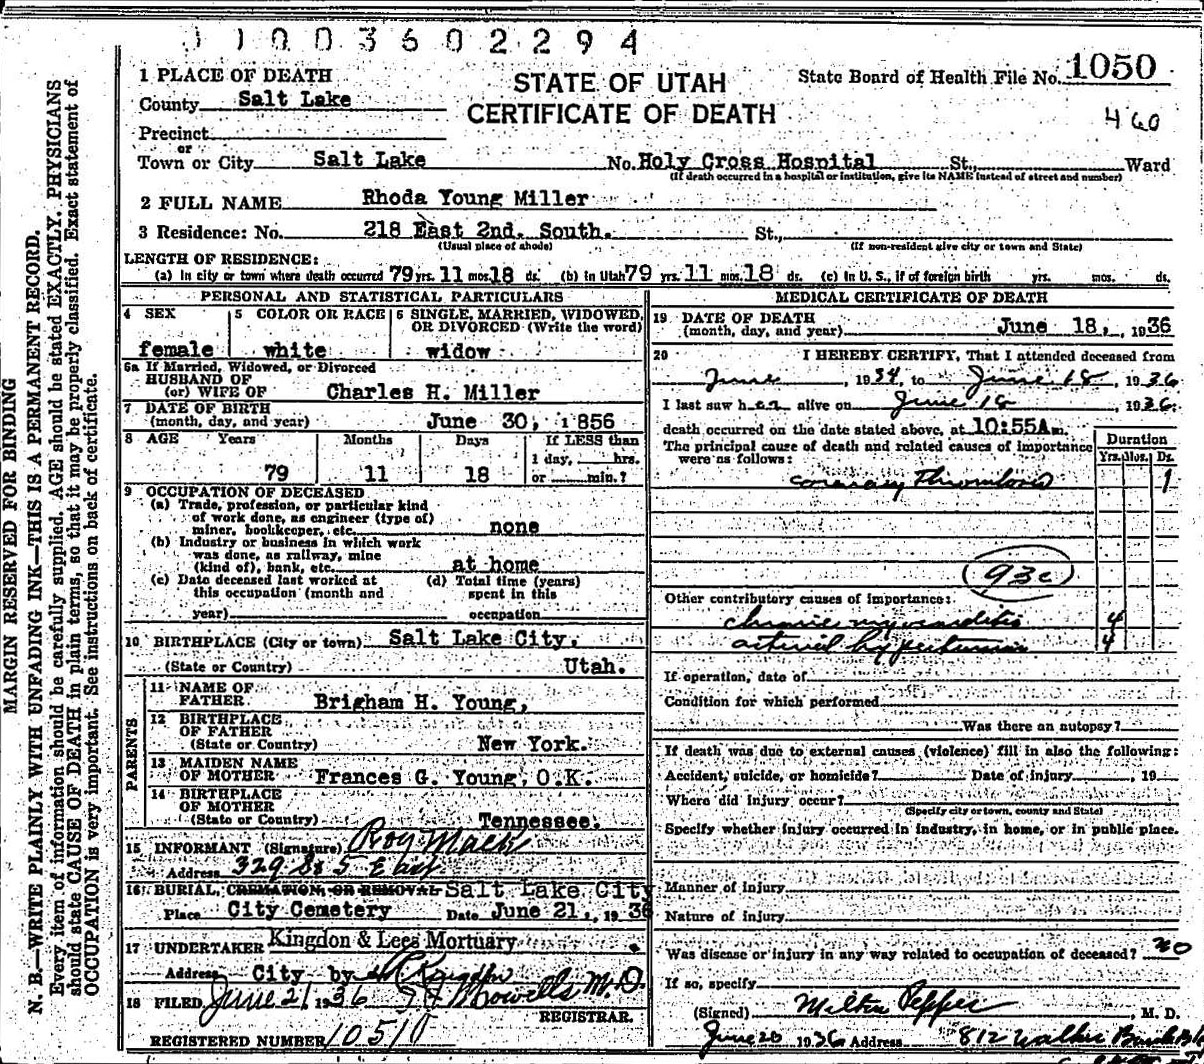 1 1 0 0 3 6 0 2 2 9 4
MARGIN RESERVED FOR BINDING
N. B.—WRITE PLAINLY WITH UNFADING INK—THIS IS A PERMANENT RECORD.
Every item of information should be carefully supplied. AGE should be stated EXACTLY. PHYSICIANS
should state CAUSE OF DEATH in plain terms, so that it may be properly classified. Exact statement of
OCCUPATION is very important. See instructions on back of certificate.
STATE OF UTAH
CERTIFICATE OF DEATH
State Board of Health File No. 1050
460
1 PLACE OF DEATH
County Salt Lake
Precinct
or
Town or City Salt Lake No. Holy Cross Hospital St., Ward
(If death occurred in a hospital or institution, give its NAME instead of street and number)
2 FULL NAME Rhoda Young Miller
3 Residence: No. 218 East 2nd. South. St.,
(Usual place of abode) (If non-resident give city or town and State)
LENGTH OF RESIDENCE:
(a) In city or town where death occurred 79 yrs. 11 mos. 18 ds. (b) in Utah 79 yrs. 11 mos. 18 ds. (c) In U. S., if of foreign birth yrs. mos. ds.
PERSONAL AND STATISTICAL PARTICULARS
4 SEX 5 COLOR OR RACE 6 SINGLE, MARRIED, WIDOWED,
OR DIVORCED (Write the word)
female white widow
6a If Married, Widowed, or Divorced
HUSBAND OF
(or) WIFE OF Charles H. Miller
7 DATE OF BIRTH
(month, day, and year) June 30, 1856
8 AGE Years Months Days If LESS than
1 day, hrs.
79 11 18 or min.?
9 OCCUPATION OF DECEASED
(a) Trade, profession, or particular kind
of work done, as engineer (type of)
miner, bookkeeper, etc. none
(b) Industry or business in which work
was done, as railway, mine
(kind of), bank, etc. at home
(c) Date deceased last worked at (d) Total time (years)
this occupation (month and spent in this
year) occupation
10 BIRTHPLACE (City or town) Salt Lake City,
(State or Country) Utah.
PARENTS
11 NAME OF
FATHER Brigham H. Young,
12 BIRTHPLACE
OF FATHER
(State or Country) New York.
13 MAIDEN NAME
OF MOTHER Frances G. Young, O.K.
14 BIRTHPLACE
OF MOTHER
(State or Country) Tennessee.
15 INFORMANT (Signature) Roy Mack
Address 329 So 5 East
16 BURIAL, CREMATION, OR REMOVAL Salt Lake City
Place City Cemetery Date June 21, 1936
17 UNDERTAKER Kingdon & Lees Mortuary
Address City by
18 FILED June 21 1936 M.D.
REGISTRAR.
REGISTERED NUMBER 10510
MEDICAL CERTIFICATE OF DEATH
19 DATE OF DEATH
(month, day, and year) June 18, 1936
20 I HEREBY CERTIFY, That I attended deceased from
June, 1934, to June 18, 1936
I last saw her alive on June 18, 1936
death occurred on the date stated above, at 10:55A m.
The principal cause of death and related causes of importance
were as follows:
Duration
Yrs. Mos. Ds.
coronary thrombosis 1
93c
Other contributory causes of importance:
chronic myocarditis 4
arterial hypertension 4
If operation, date of
Condition for which performed
Was there an autopsy?
If death was due to external causes (violence) fill in also the following:
Accident, suicide, or homicide? Date of injury, 19
Where did injury occur?
(Specify city or town, county and State)
Specify whether injury occurred in industry, in home, or in public place.
Manner of injury
Nature of injury
Was disease or injury in any way related to occupation of deceased? no
If so, specify
(Signed) Milton Pepper, M. D.
June 20 1936 Address 812 Walker